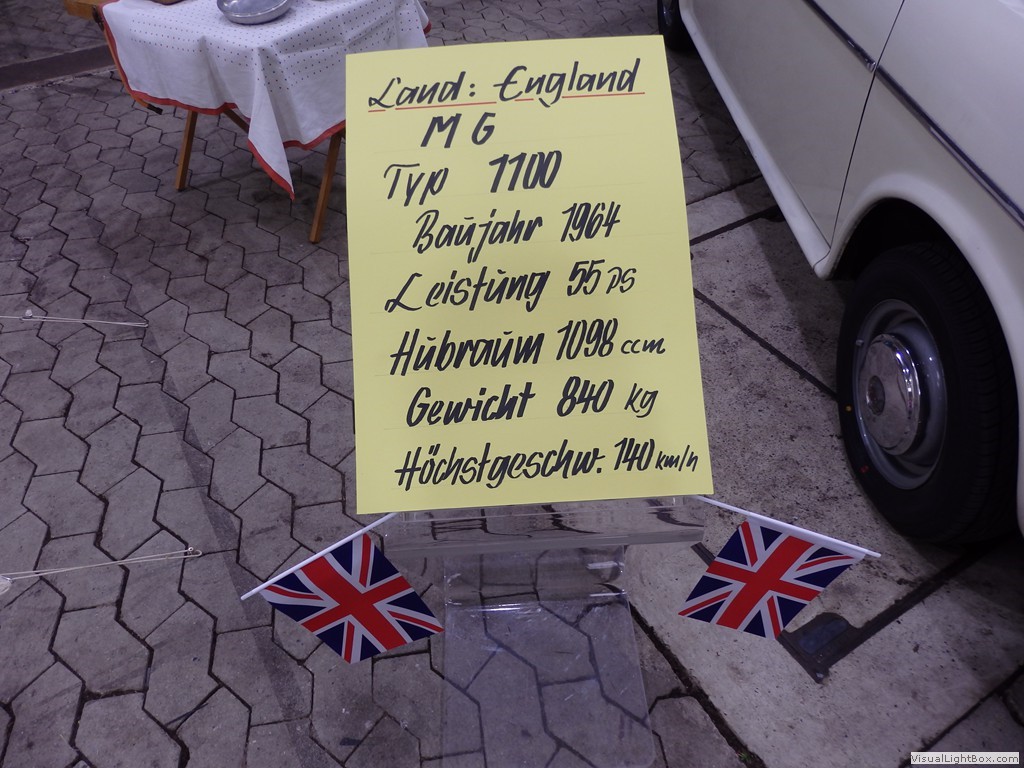 Land: England
MG
Typ 1100
Baujahr 1964
Leistung 55 PS
Hubraum 1098 ccm
Gewicht 840 kg
Höchstgeschw. 140 km/h
VisualLightBox.com